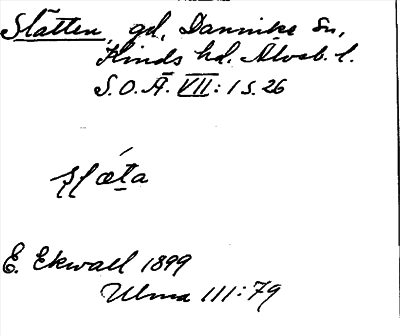 Slätten, gd, Dannike sn,
Kinds hd. Älvsb. l.
S. O. Ä. VII: 1 s. 26
slæ̀ta
E. Ekwall 1899
Ulma 111:79